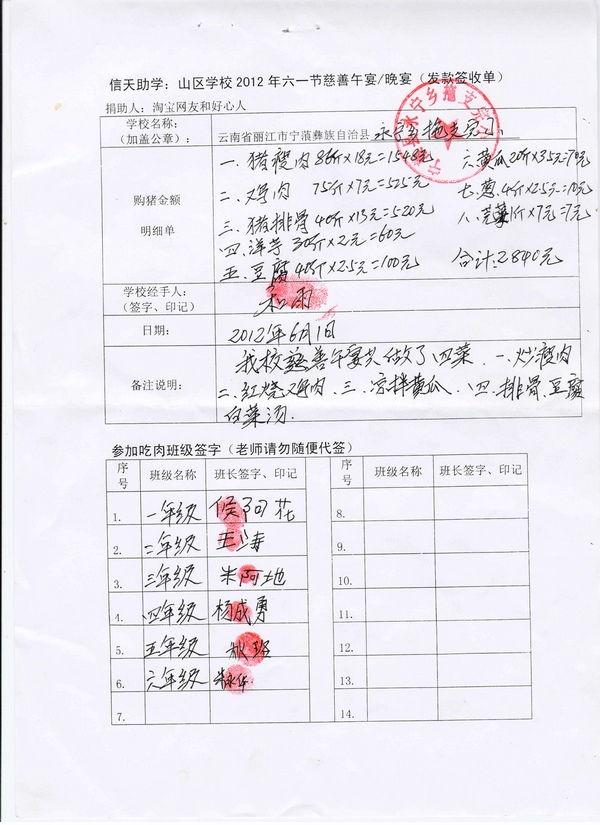 信天助学：山区学校2012年六一节慈善午宴/晚宴（发款签收单）
捐助人：淘宝网友和好心人
学校名称：
（加盖公章）：
云南省丽江市宁蒗彝族自治县永宁乡拖支完小
购猪金额
明细单
一.猪瘦肉 86斤×18元=1548元 六.黄瓜20斤×3.5元=70元
二.鸡肉 75斤×7元=525元 七.葱.4斤×2.5元=10元
三.猪排骨40斤×13元=520元 八.芫荽1斤×7元=7元
四.洋芋30斤×2元=60元
五.豆腐40斤×2.5元=100元 合计:2840元
学校经手人：
（签字、印记）
和雨
日期：
2012年6月1日
备注说明：
我校慈善午宴共做了四菜.一.炒瘦肉
二.红烧鸡肉.三.凉拌黄瓜.四.排骨.豆腐
白菜汤.
参加吃肉班级签字（老师请勿随便代签）
序号 班级名称 班长签字、印记 序号 班级名称 班长签字、印记
1. 一年级 8.
2. 二年级 9.
3. 三年级 朱阿地 10.
4. 四年级 杨成勇 11.
5. 五年级 12.
6. 六年级 13.
7. 14.